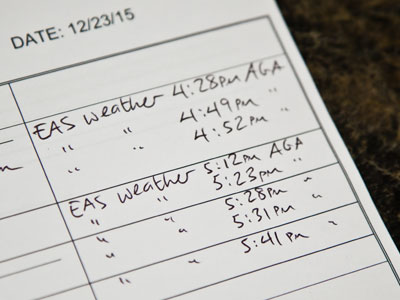 DATE: 12/23/15
EAS weather 4:28pm AGA
" " 4:49pm "
" " 4:52pm "
EAS weather 5:12pm AGA
" " 5:23pm "
" " 5:28pm "
" " 5:31pm "
" " 5:41pm "